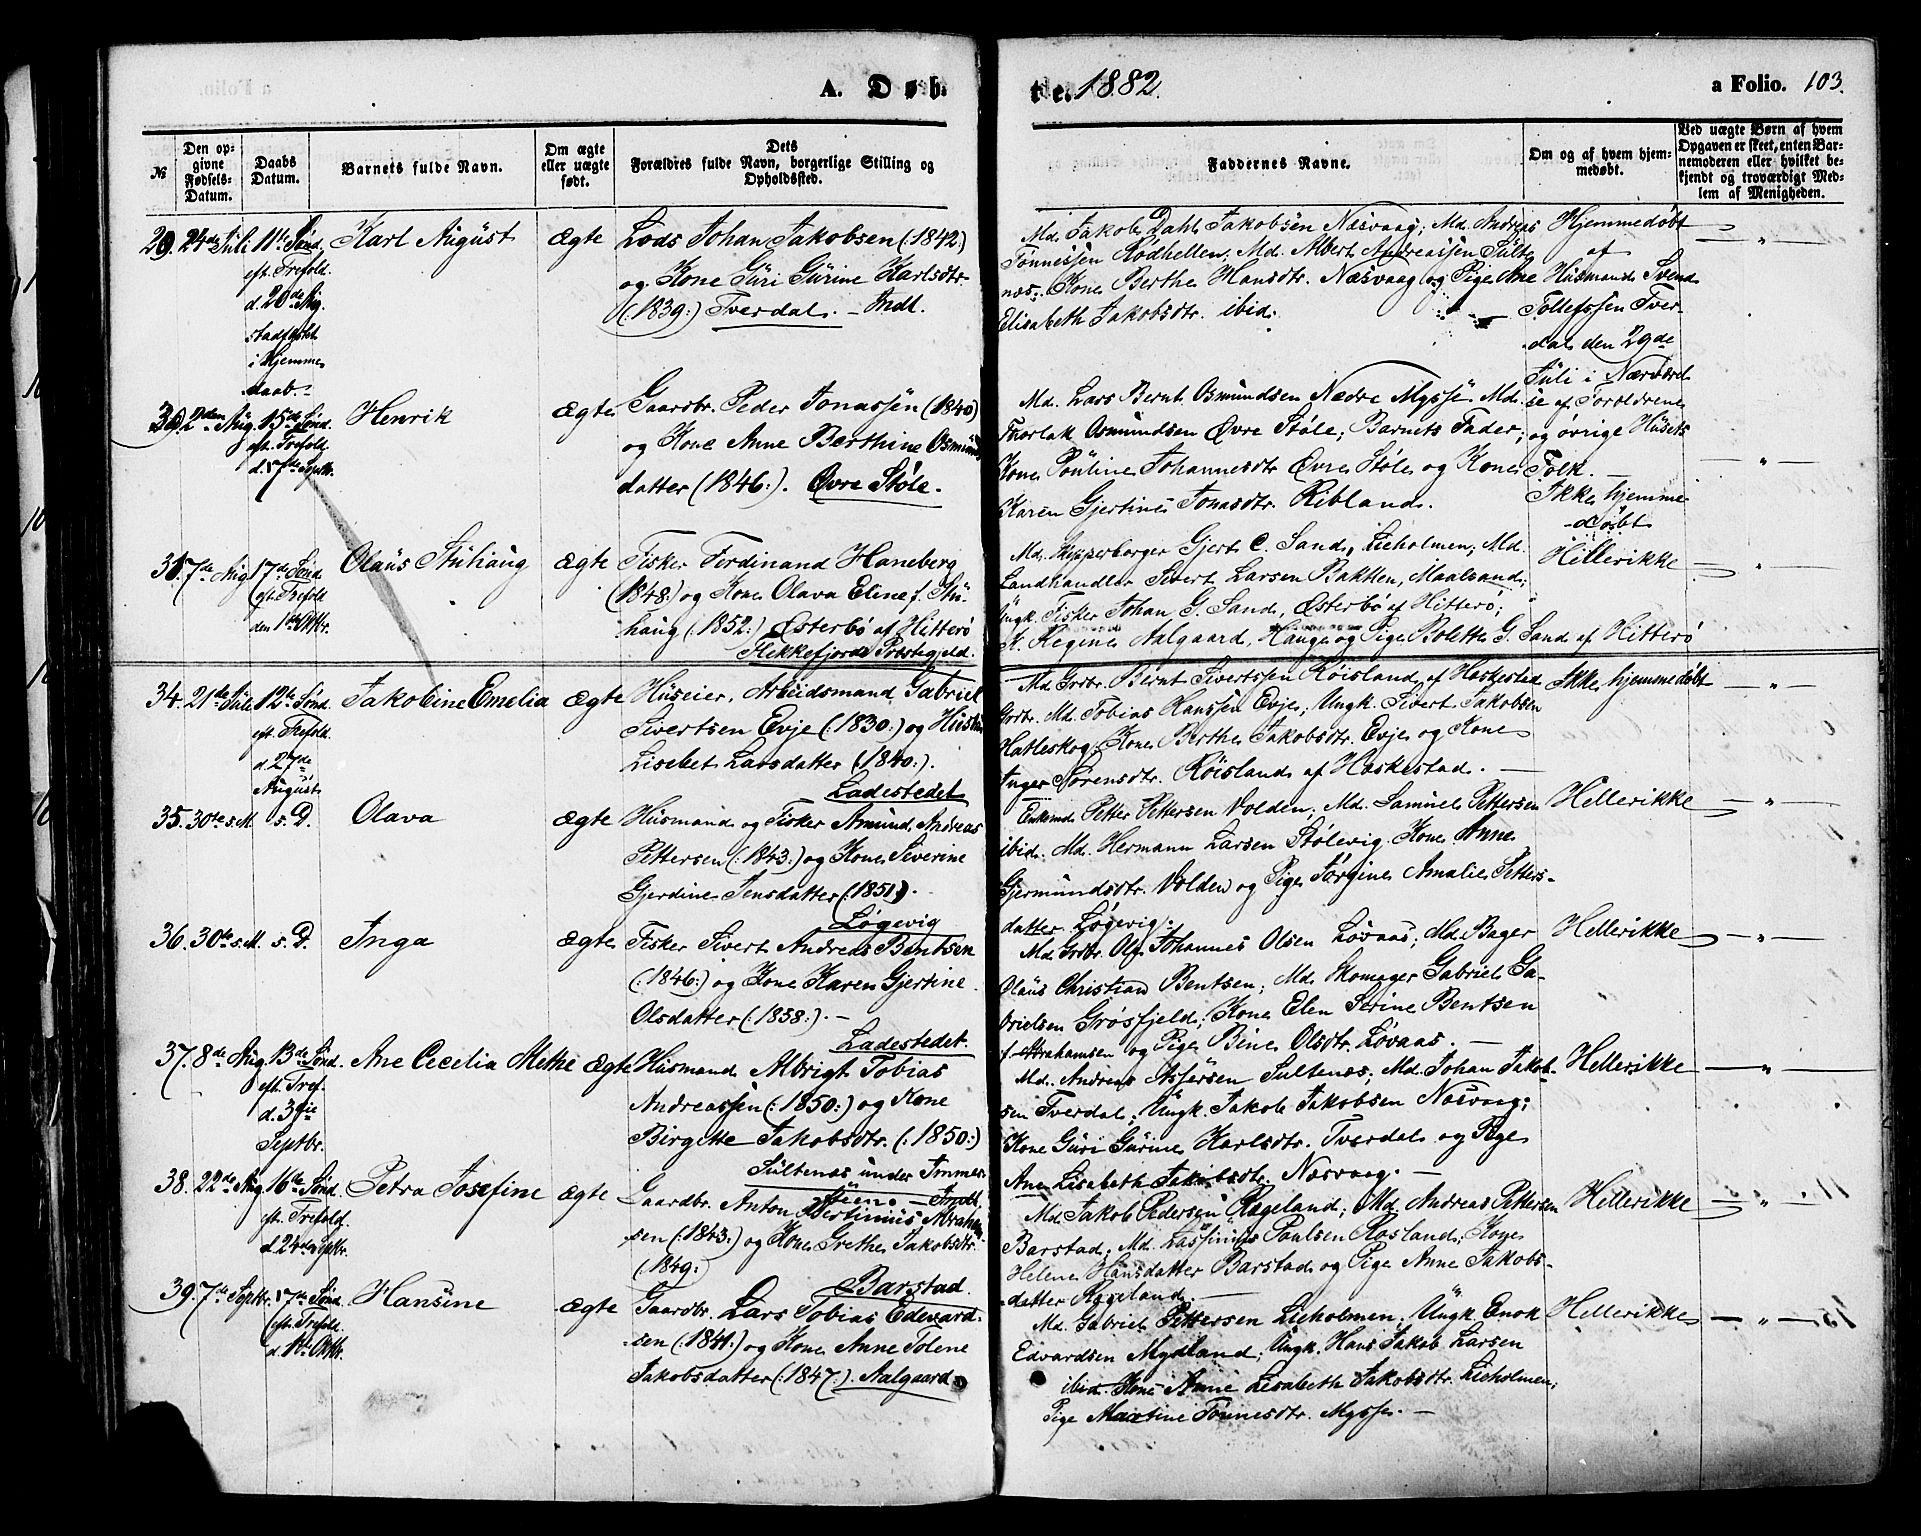 A. Døb-
te. 1882.
a Folio. 103.
№
Den op-
givne
Fødsels-
Datum.
Daabs
Datum.
Barnets fulde Navn.
Om ægte
eller uægte
født.
Dets
Forældres fulde Navn, borgerlige Stilling og
Opholdssted.
Faddernes Navne.
Om og af hvem hjem-
medøbt.
Ved uægte Børn af hvem
Opgaven er skeet, enten Bar-
nemoderen eller hvilket be-
kjendt og troværdigt Med-
lem af Menigheden.
29. 24de Juli
11te Sønd.
eft. Trefold.
d. 20de Aug.
stadfæstet
i Hjemme
daab.
Karl August
ægte
Lods Johan Jakobsen (:1842:)
og Kone Guri Gurine Karlsdtr.
(:1839:) Tverdal. - Indl.
Md. Jakob Dahl Jakobsen Næsvaag; Md. Andreas
Tønnessen Rødhellen; Md. Albert Andreassen Sulte
næs; Kone Berthe Hansdtr. Næsvaag og Pige Ane
Elisabeth Jakobsdtr. ibid.
Hjemmedøbt
af
Husmand Svend
Tollefssen Tver-
dal den 29de
Juli i Nærværel
se af Forældrene
og øvrige Husets
Folk. -
— „ —
30. 2den Aug.
15de Sønd.
eft. Trefold.
d. 17de Septbr.
Henrik
ægte
Gaardbr. Peder Jonassen (1840)
og Kone Anne Berthine Osmunds
datter (1846:). Øvre Støle.
Md. Lars Bernt Osmundsen Nedre Mysse, Md.
Thorlak Osmundsen Øvre Støle; Barnets Fader;
Kone Pouline Johannesdtr Øvre Støle og Kone
Karen Gjertine Jonasdtr. Ribland.
Ikke hjemme
døbt
— „ —
31. 7de Aug.
17de Sønd
eft. Trefold
den 1ste Oktbr.
Olaus Stuhaug
ægte
Fisker Ferdinand Haneberg
(1848:) og Kone Olava Eline f. Stu-
haug (:1852:) Østerbø af Hitterø
Flekkefjords Præstegjeld.
Md. Skipperborger Gjert C. Sand, Lieholmen; Md.
Landhandler Sivert Larsen Bakken, Maalsand;
Ungk. Fisker Johan G. Sand, Østerbø af Hitterø;
K. Regine Aalgaard, Hauge og Pige Bolette G. Sand af Hitterø
Hellerikke
— „ —
34. 21de Juli
12te Sønd.
eft. Trefold
d. 27de
August
Jakobine Emelia
ægte
Huseier, Arbeidsmand Gabriel
Sivertsen Evje (:1830:) og Hustru
Lisebet Larsdatter (:1840:).
Ladestedet
Md Grdbr. Bernt Sivertssen Røisland af Heskestad
Grdbr. Md. Tobias Hanssen Evje; Ungk. Sivert Jakobsen
Hatleskog; Kone Berthe Jakobsdtr. Evje og Kone
Inger Sørensdtr. Røisland af Heskestad. —
Ikke hjemmedøbt
— „ —
35. 30te s. M.
s. D.
Olava
ægte
Husmand og Fisker Amund Andreas
Pettersen (:1843:) og Kone Siverine
Gjerdine Jensdatter (:1851).
Løgevig
Enkemd. Petter Pettersen Volden; Md. Samuel Pettersen
ibid. Md. Hermann Larsen Stølevig. Kone Anne
Gjermundsdtr. Volden og Pige Jørgine Amalie Petters-
datter Løgevig:
Hellerikke
— „ —
36. 30te s. M.
s. D.
Inga
ægte
Fisker Sivert Andreas Bentsen
(:1846:) og Kone Karen Gjertine
Olsdatter (:1858:). —
Ladestedet.
Md Grdbr. Ole Johannes Olsen Løvaas; Md. Bager
Olaus Christian Bentsen; Md. Skomager Gabriel Ga-
brielsen Grøsfjeld; Kone Elen Serine Bentsen
f. Abrahamsen og Pige Bine Olsdtr. Løvaas. —
Hellerikke
— „ —
37. 8de Aug.
13de Sønd.
eft. Tref.
d. 3die
Septbr.
Ane Cecelia Methe
ægte
Husmand Albrigt Tobias
Andreassen (:1850:) og Kone
Birgitte Jakobsdtr. (:1850:)
Sultenæs under Immer-
steen. — Indl.
Md. Andreas Assersen Sultenæs; Md. Johan Jakob-
sen Tverdal; Ungk. Jakob Jakobsen Næsvaag;
Kone Guri Gurine Karlsdtr. Tverdal og Pige
Ane Lisabeth Jakobsdtr. Næsvaag. —
Hellerikke
— „ —
38. 22de Aug.
16te Sønd.
eft. Trefoldf.
d. 24de Septbr.
Petra Josefine
ægte
Gaardbr. Anton Bertinius Abraham
sen (:1843:) og Kone Grethe Jakobsdtr.
(:1849:)
Barstad.
Md. Jakob Pedersen Rægeland; Md. Andreas Pettersen
Barstad; Md. Lassinius Poulsen Rosland; Kone
Helene Hansdatter Barstad og Pige Anne Jakobs-
datter Rægeland. —
Hellerikke
— „ —
39. 7de Septbr.
17de Sønd.
eft. Trefold.
d. 1ste Oktbr.
Hansine
ægte
Gaardbr. Lars Tobias Edevard-
sen (:1841:) og Kone Anne Tolene
Jakobsdatter (:1847.) Aalgaard.
Md. Gabriel Pettersen Lieholmen. Ungk. Enok
Edvardsen Mydland; Ungk. Hans Jakob Larsen
ibid. Kone Anne Lisabeth Jakobsdtr. Lieholmen;
Pige Martine Tønnesdtr. Mysse. —
Hellerikke
— „ —